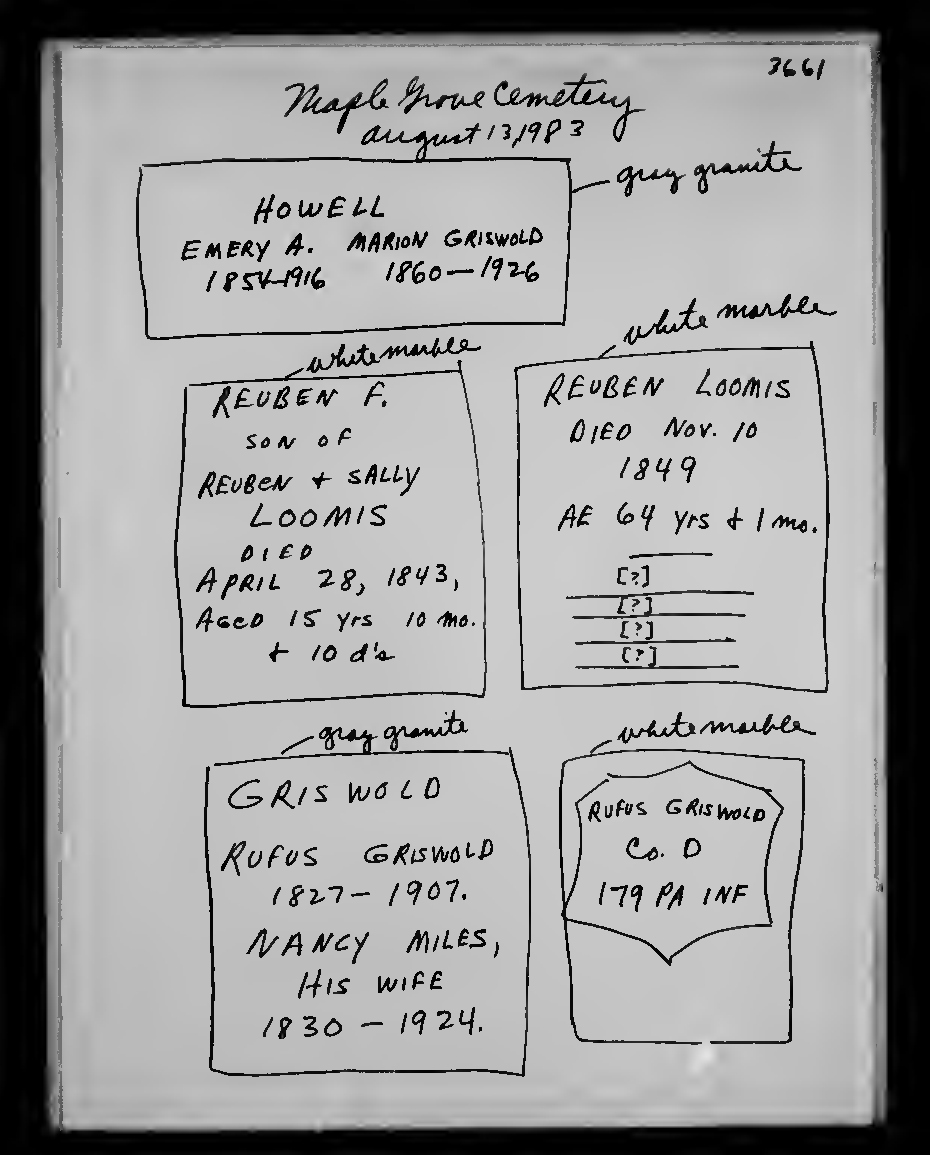 3661
Maple Grove Cemetery
August 13, 1983
gray granite
HOWELL
EMERY A. MARION GRISWOLD
1854-1916 1860-1926
white marble
REUBEN F.
SON OF
REUBEN + SALLY
LOOMIS
DIED
APRIL 28, 1843,
AGED 15 yrs 10 mo.
+ 10 d's
white marble
REUBEN LOOMIS
DIED NOV. 10
1849
AE 64 yrs + 1 mo.
[?]
[?]
[?]
[?]
gray granite
GRISWOLD
RUFUS GRISWOLD
1827-1907.
NANCY MILES,
HIS WIFE
1830-1924.
white marble
RUFUS GRISWOLD
Co. D
179 PA INF